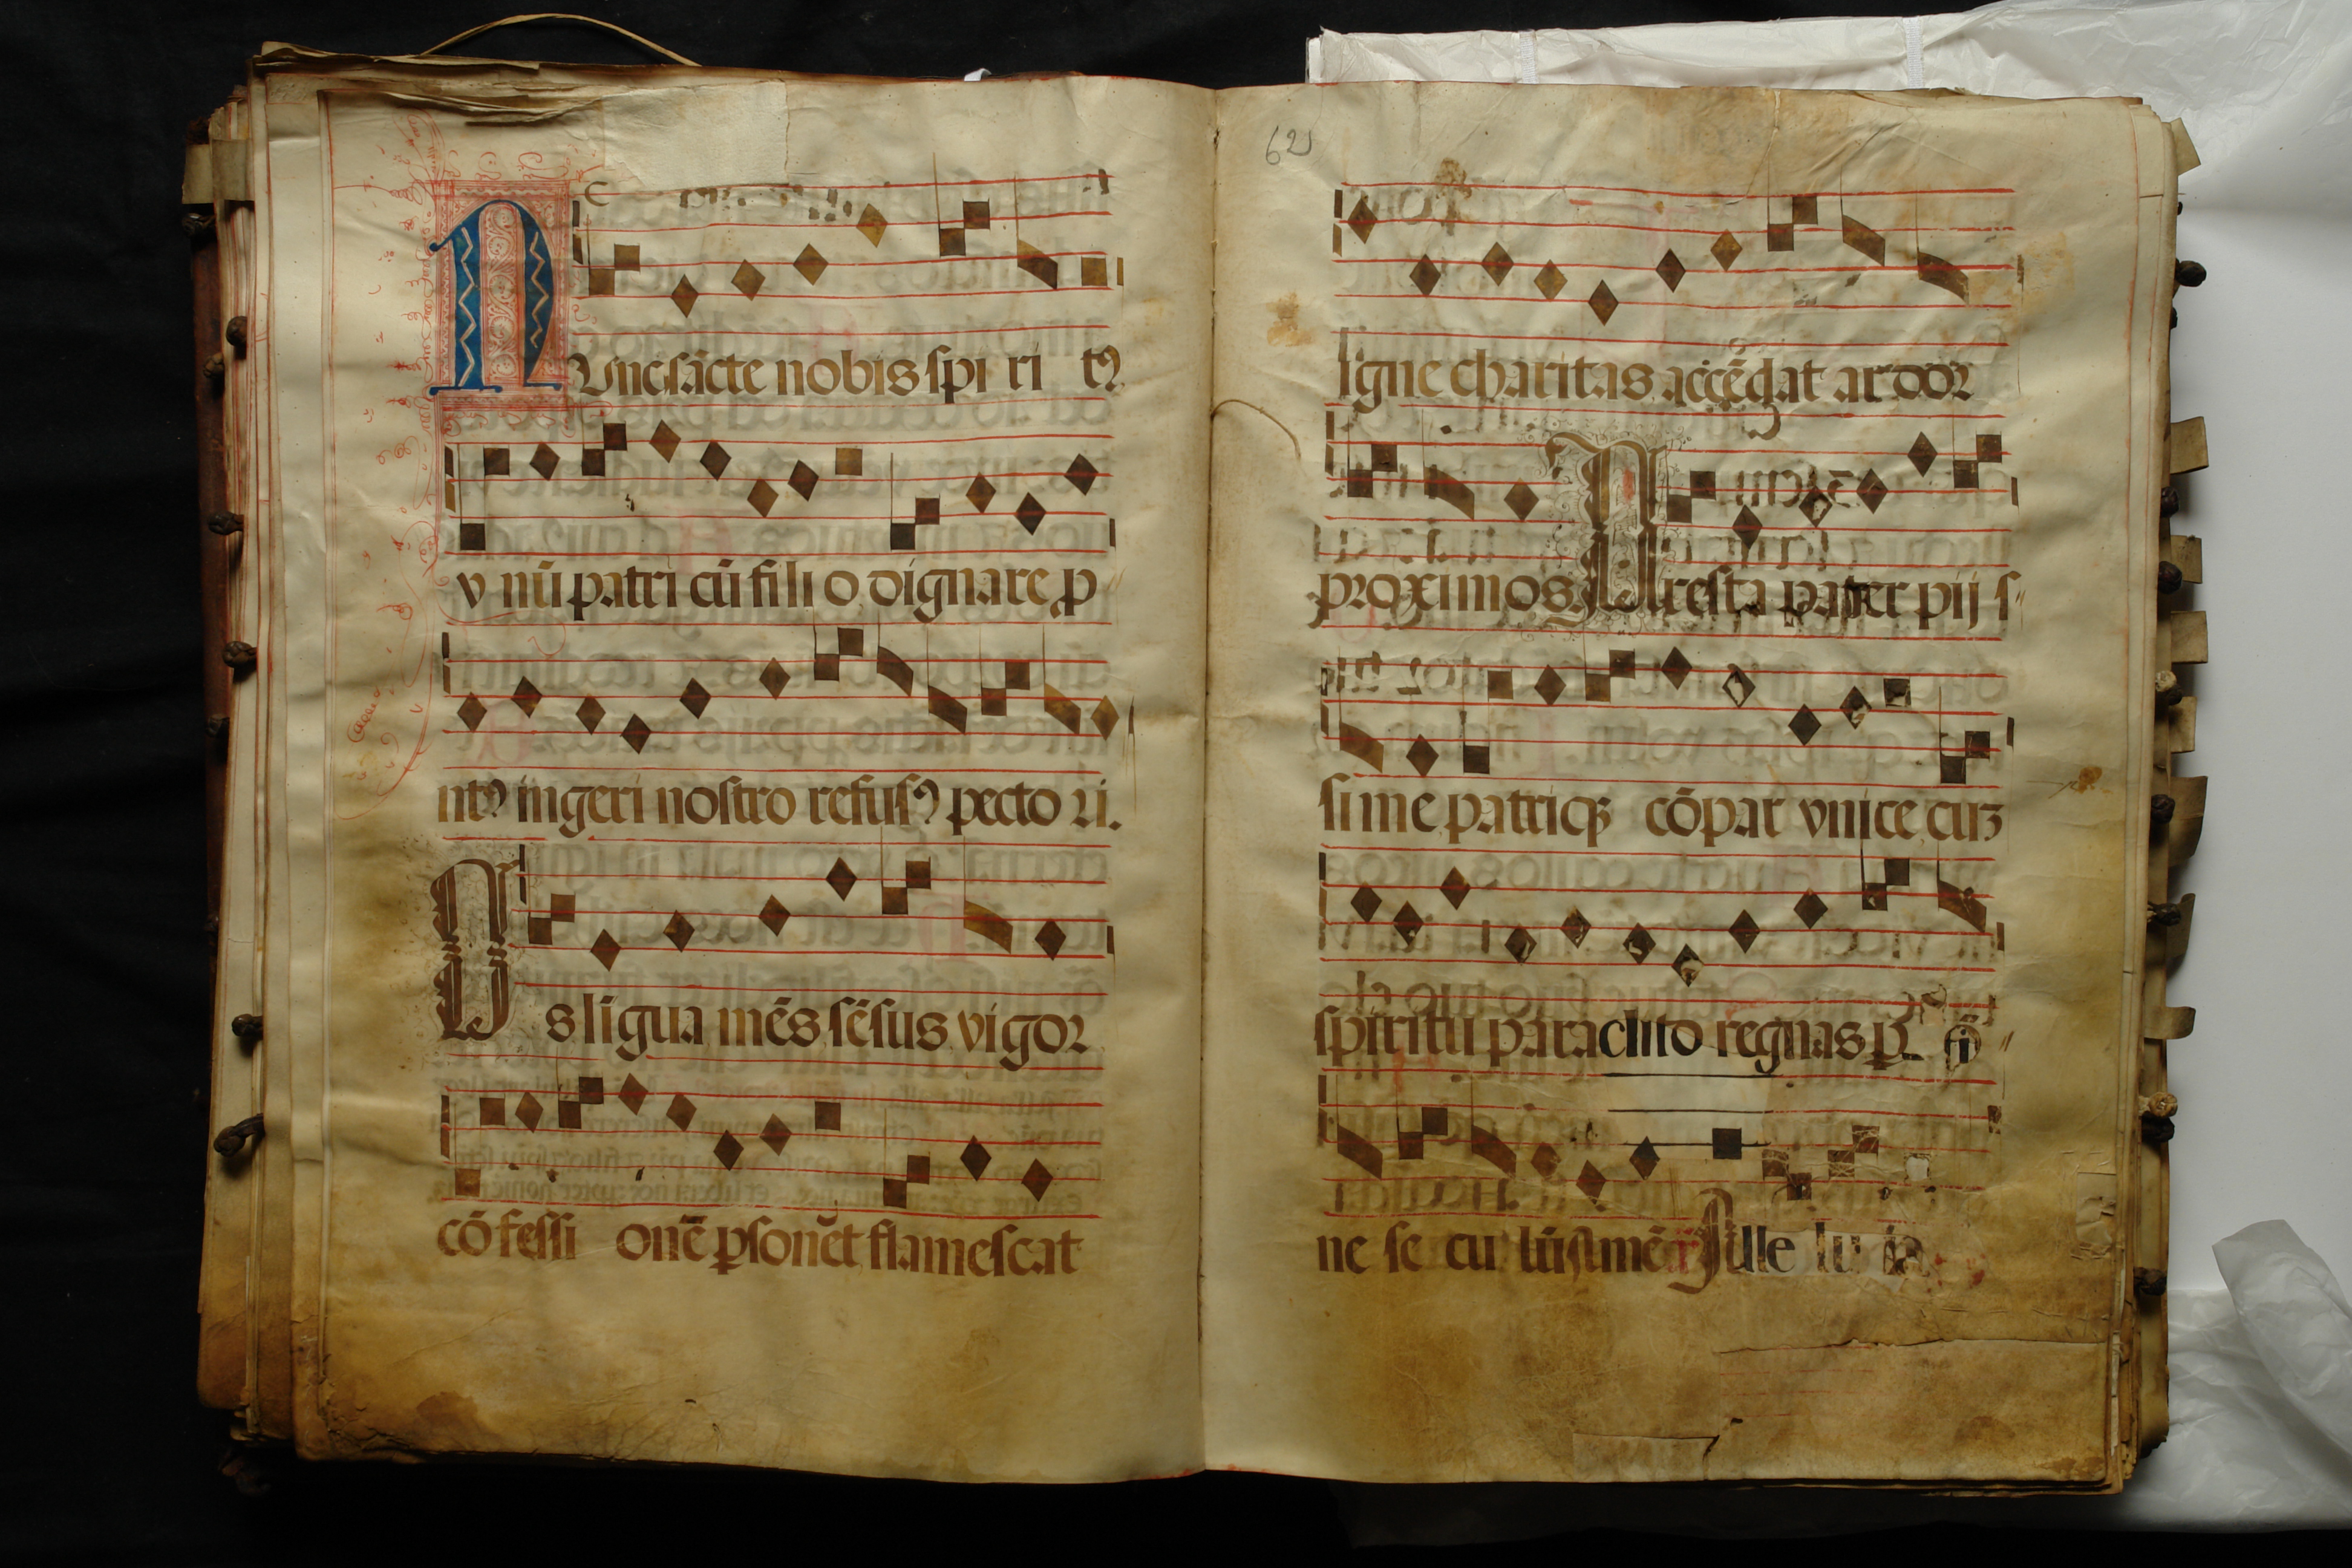 NVnc sācte nobis spi ri tꝰ
v nū patri cū fili o dignare ꝓ
ntꝰ ingeri nostro refusꝰ pecto ri.
Os līgua mēs sēsus vigor
cōfessi onē ꝑsonēt flamescat
62
igne charitas accēdat ardor
proximos. Presta pater pij s
sime patriqꝫ cōpar vnice cuz
spiritu paraclito regnas ꝑ oī
ne se cu lū amē Alle lu ia